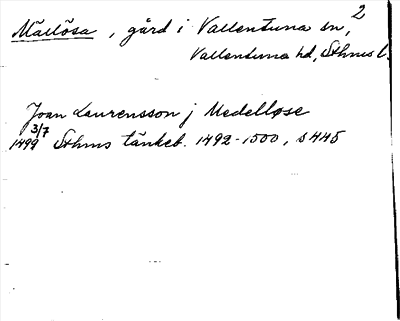 2
Mällösa, gård i Vallentuna sn,
Vallentuna hd, Sthms l.
Joan Laurensson j Medelløse
3/7
1499 Sthms tänkeb. 1492-1500, s 445